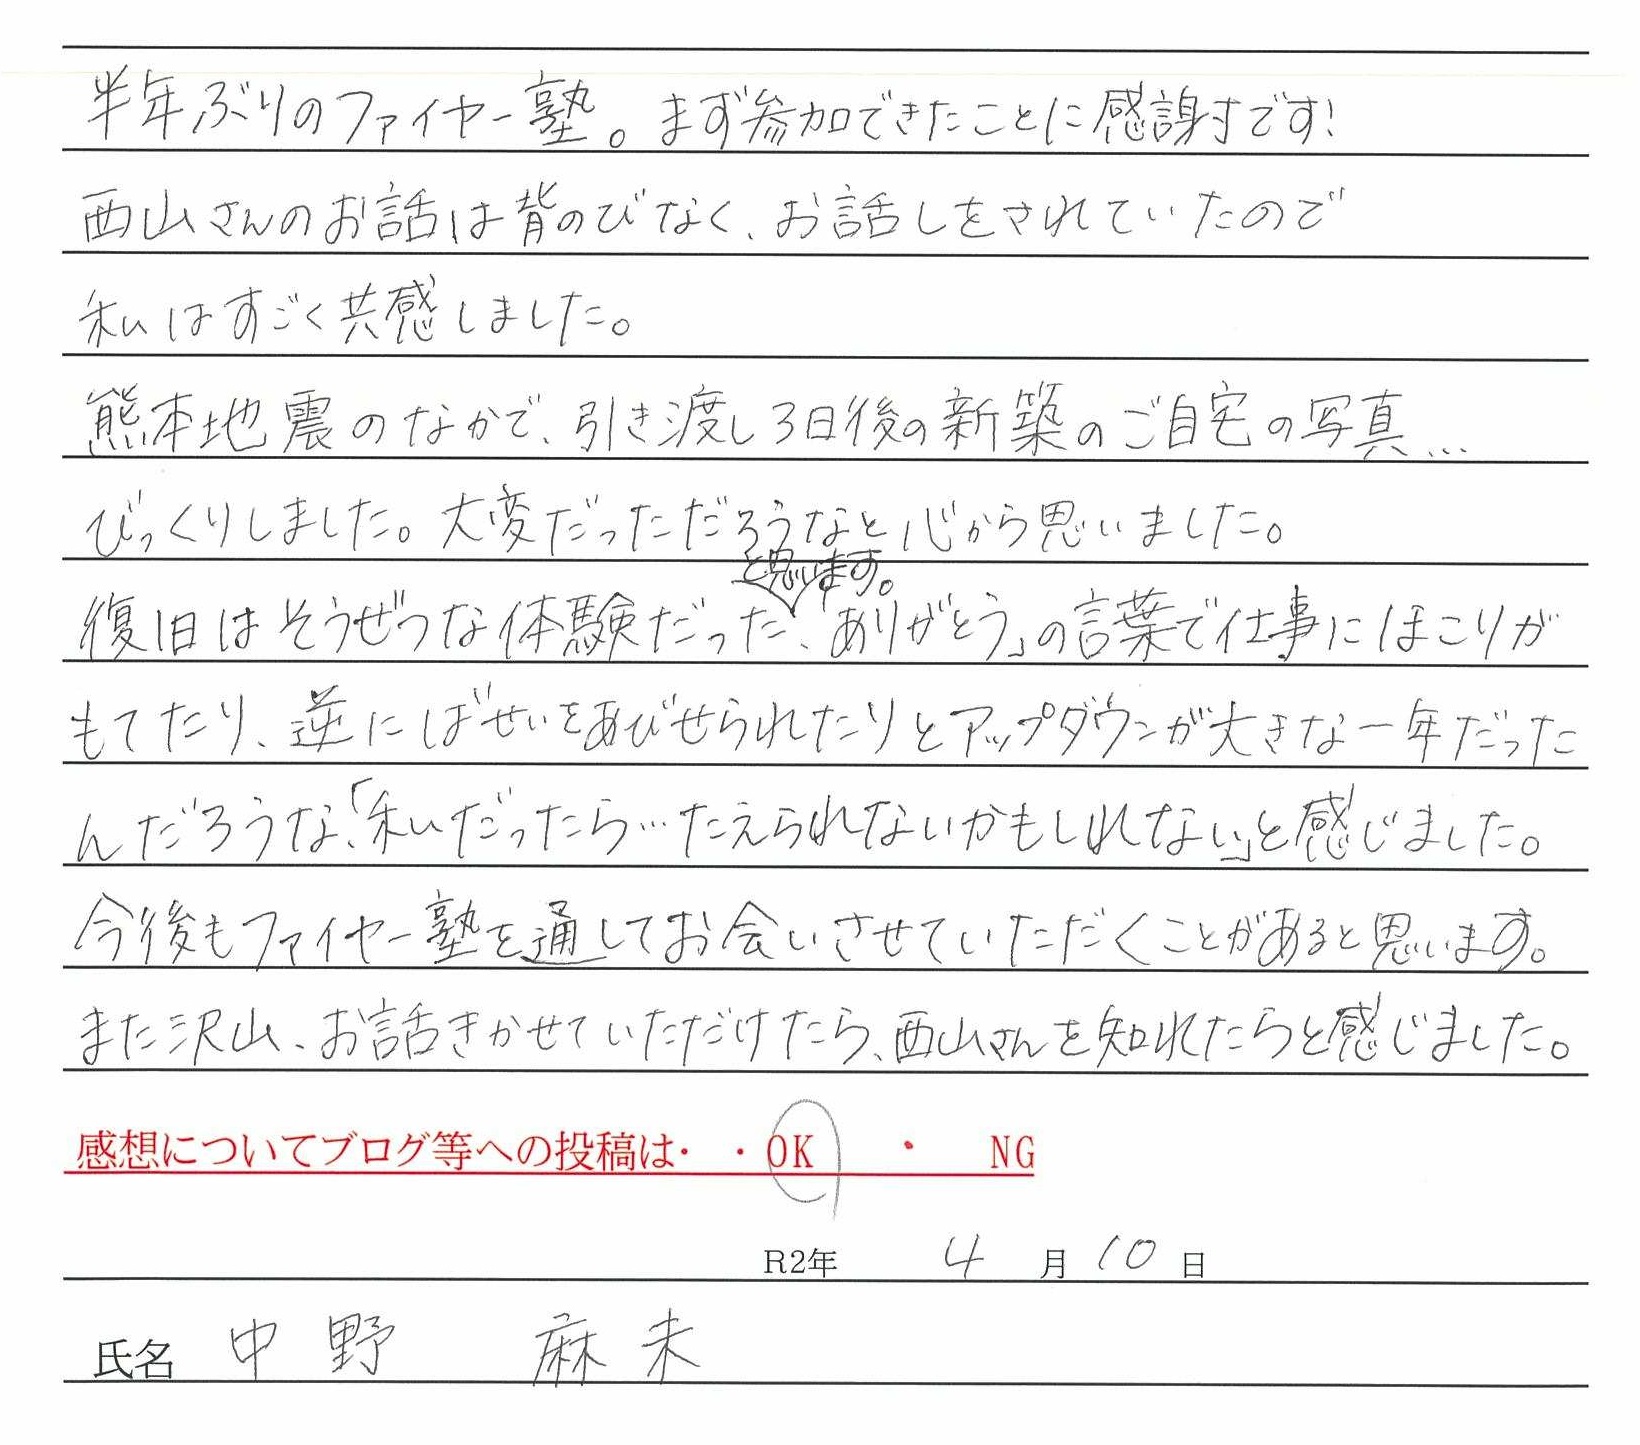 半年ぶりのファイヤー塾。まず参加できたことに感謝です!
西山さんのお話は背のびなく、お話しをされていたので
私はすごく共感しました。
熊本地震のなかで、引き渡し3日後の新築のご自宅の写真…
びっくりしました。大変だっただろうなと心から思いました。
と思います。
復旧はそうぜつな体験だった、ありがとう」の言葉で仕事にほこりが
もてたり、逆にばせいをあびせられたりとアップダウンが大きな一年だった
んだろうな、「私だったら…たえられないかもしれない」と感じました。
今後もファイヤー塾を通してお会いさせていただくことがあると思います。
また沢山、お話きかせていただけたら、西山さんを知れたらと感じました。
感想についてブログ等への投稿は・・OK ・ NG
R2年 4月10日
氏名 中野 麻未